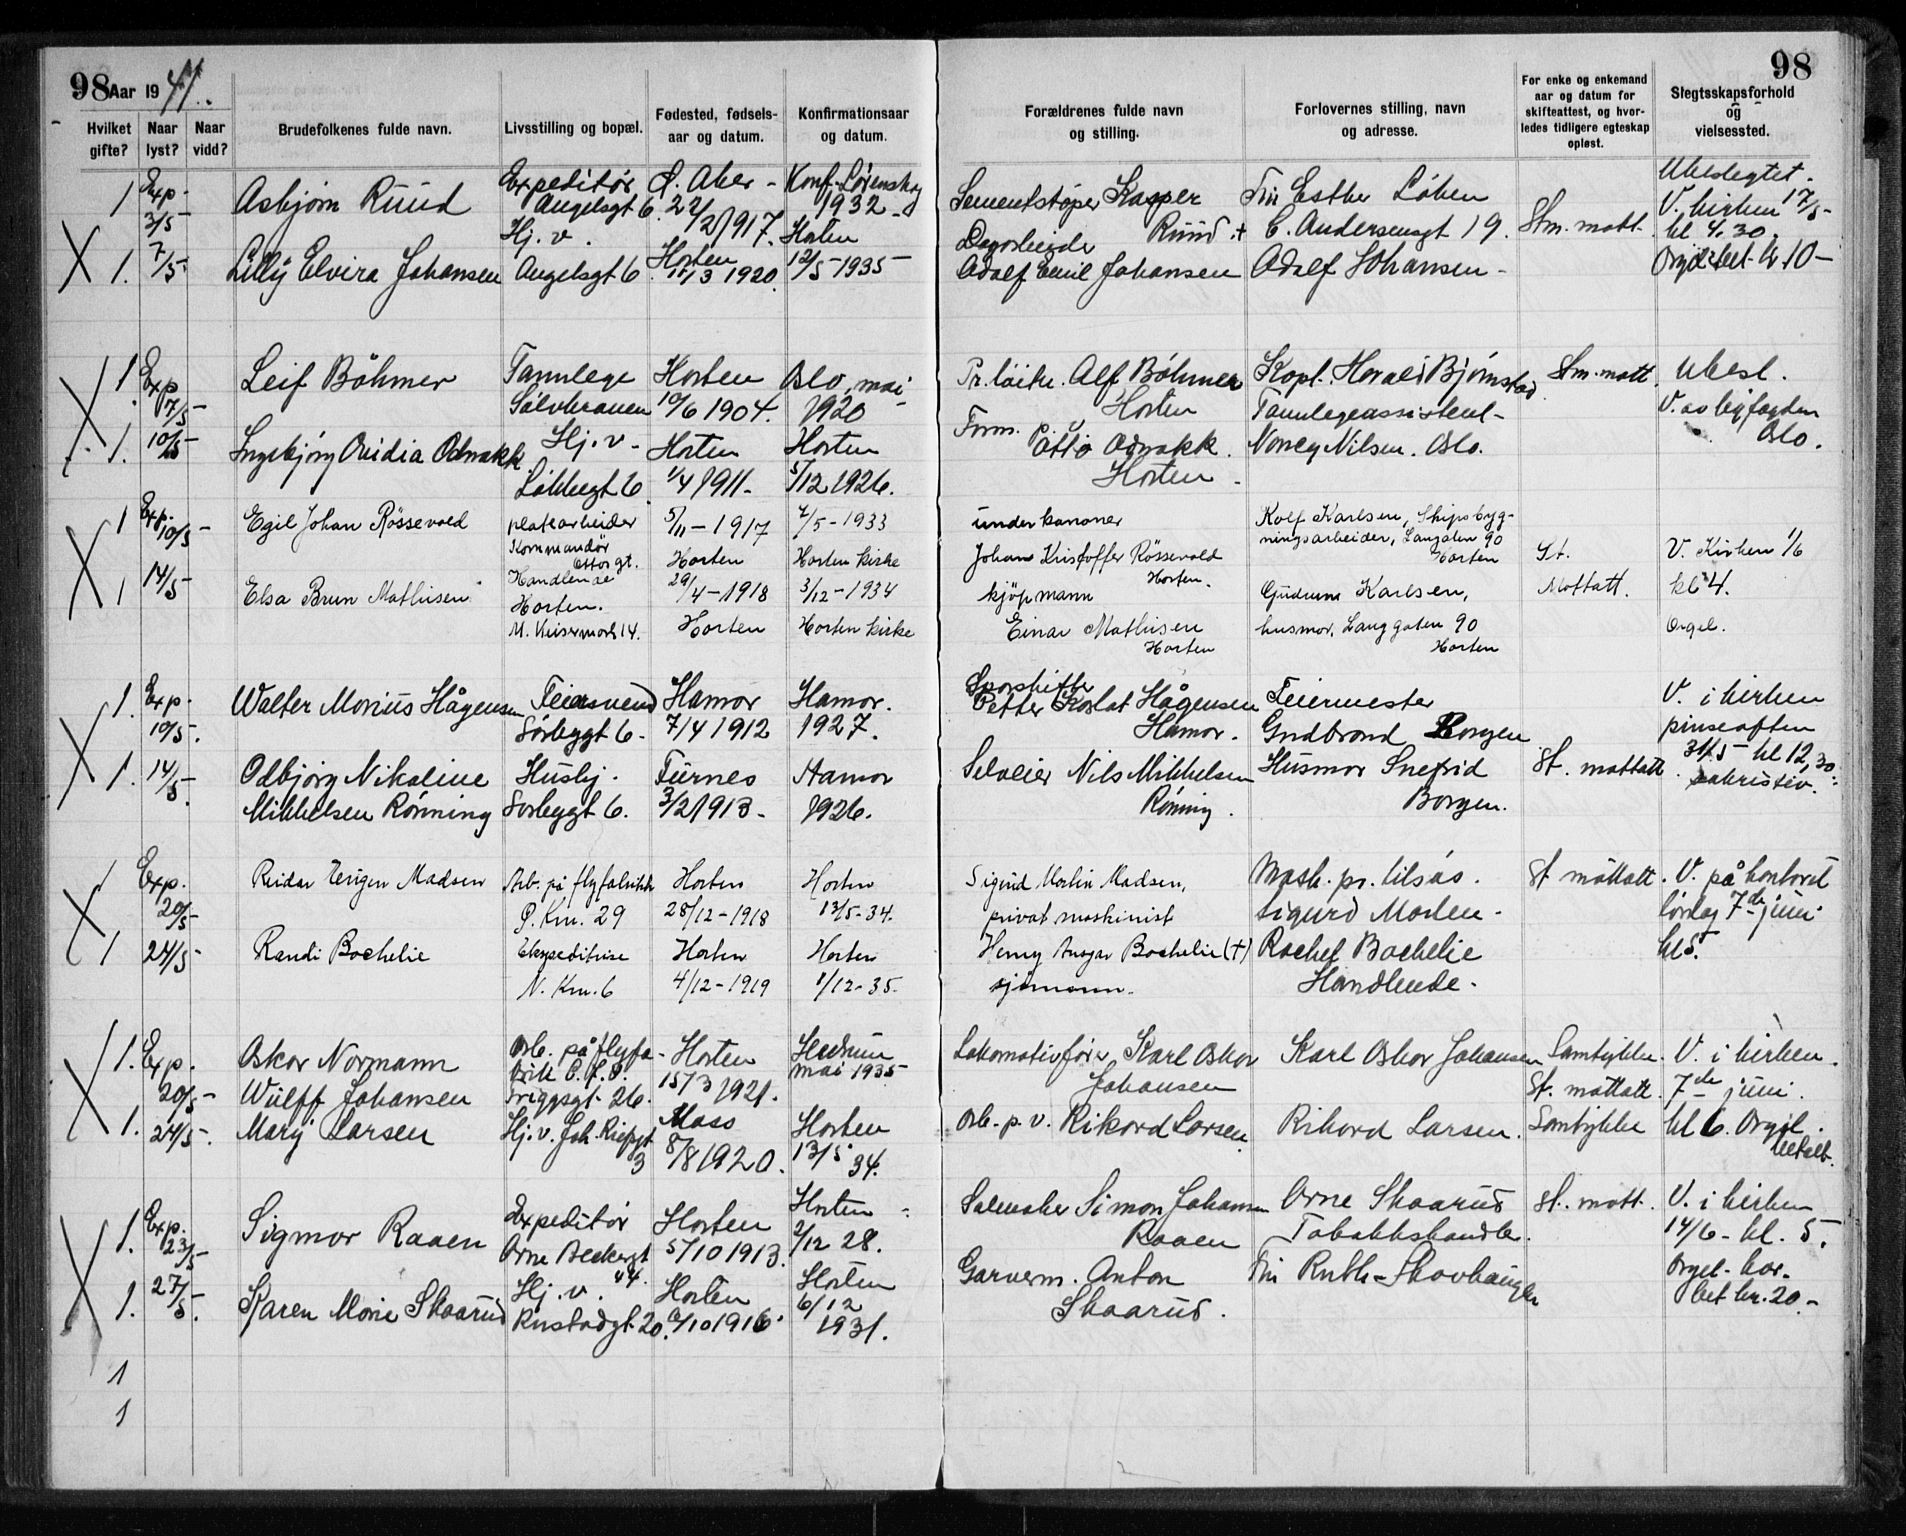 98 Aar 1941.
98
Hvilket gifte?
Naar lyst?
Naar vidd?
Brudefolkenes fulde navn.
Livsstilling og bopæl.
Fødested, fødsels-
aar og datum.
Konfirmationsaar
og datum.
Forældrenes fulde navn
og stilling.
Forlovernes stilling, navn
og adresse.
For enke og enkemand
aar og datum for
skifteattest, og hvor-
ledes tidligere egteskap
opløst.
Slegtsskapsforhold
og
vielsessted.
1 Exp. 3/5
Asbjørn Ruud
Expeditør
Angelsgt 6.
Ø. Aker -
22/2 1917.
Konf. Lørenskog
1932 -
Sementstøper Kasper
Ruud +
Frk Esther Løken
C. Andersensgt 19.
Stm. mott.
Ubeslegtet.
V. kirken 17/5 -
kl 4.30.
1. 7/5
Lilly Elvira Johansen
Hj. v.
Angelsgt 6
Horten
11/3 1920.
Horten
12/5 1935
Adolf Emil Johansen
Adolf Johansen -
Orgel bet kr 10 -
1. Exp. 7/5
Leif Böhmer
Tannlege
Sølvkronen
Horten
10/6 1904.
Oslo, mai
1920
Alf Böhmer
Horten
Kapt. Harald Bjørnstad
Tannlegeassistent -
Stm. mott.
Ubesl.
V. av byfogden
Oslo.
1. 10/5
Ingebjørg Ovidia Odnakk
Hj. v -
Løkkegt 6.
Horten
1/4 1911 -
Horten
5/12 1926.
Form.
Otto Odnakk.
Horten -
Nancy Nilsen. Oslo.
1 Exp. 10/5 -
Egil Johan Røssevold
platearbeider
Kommandør
Ottosgt.
5/11 - 1917
Horten
2/5 - 1933
Horten kirke
underkanoner
Johan Kristoffer Røssevold
Horten.
Rolf Karlsen, Skipsbyg-
ningsarbeider, Langgaten 90
Horten
St.
Mottatt.
V. Kirken 1/6
kl 4.
Orgel.
1 14/5
Elsa Brun Mathisen
Handlende
Horten.
14.
29/4 - 1918
Horten
3/12 - 1934
Horten kirke
kjøpmann
Einar Mathisen
Horten
Gudrun Karlsen,
husmor, Langgaten 90
Horten
1. Exp. 10/5.
Walter Marius Hågensen
Feiersvend
Sørbyggt 6 -
Hamar
7/4 1912
Hamar.
1927.
Sporskifter
Petter Hågensen
Hamar.
Feiermester
Gudbrand Borgen
V. i kirken
pinseaften
31/5 kl 12,30
sakristiv.
1. 14/5.
Odbjørg Nikoline
Mikkelsen Rönning
Hushj.
Sørbyggt 6.
Furnes
3/2 1913 -
Hamar
1926.
Selveier Nils Mikkelsen
Rönning.
Husmor Snefrid
Borgen.
St. mottatt.
1 Exp. 20/5 -
Reidar Madsen
Arb. på flyfabrikk
P. Km. 29
Horten
28/12 - 1918
Horten
13/5 - 34.
Sigurd Martin Madsen,
privat maskinist
Sigurd Madsen -
St mottatt.
V. på kontoret
lørdag 7de juni
kl 5.
1 24/5
Randi Bachelie
Ekspeditrise
N. Km. 6
Horten
4/12 - 1919
Horten
1/12 - 35.
Henry Ansgar Bachelie (+)
sjømann.
Rachel Bachelie
Handlende.
1. Exp. 20/5 -
Oskar Normann
Wülff Johansen
Arb. på flyfa-
26.
Horten
15/3 1921.
Hedrum
mai 1935
Lokomotivfører, Karl Oskar
Johansen
Karl Oskar Johansen
Samtykke.
St. mottatt.
V. i kirken.
7de juni.
1. 24/5.
Mary Larsen
Hj. v. Joh.
3
Moss
8/8 1920.
Horten
13/5 34.
Arb. p. v. Rikard Larsen
Rikard Larsen.
Samtykke
kl 6. Orgel.
betalt.
1. Exp. 23/5
Sigmor Raaen
Expeditør
Arne
44.
Horten
5/10 1913.
Horten
2/12 28.
Salmaker Simon Johansen
Raaen
Arne Skaarud
Tobakkshandler.
St. mott.
V. i kirken
14/6 - kl. 5.
1. 27/5.
Karen Marie Skaarud
Hj. v.
Rustadgt 20.
Horten
6/10 1916
Horten
6/12
1931.
Garverm. Anton
Skaarud.
Frk Ruth Skovhaugen
Orgel - kor.
bet kr. 20. -
1
1